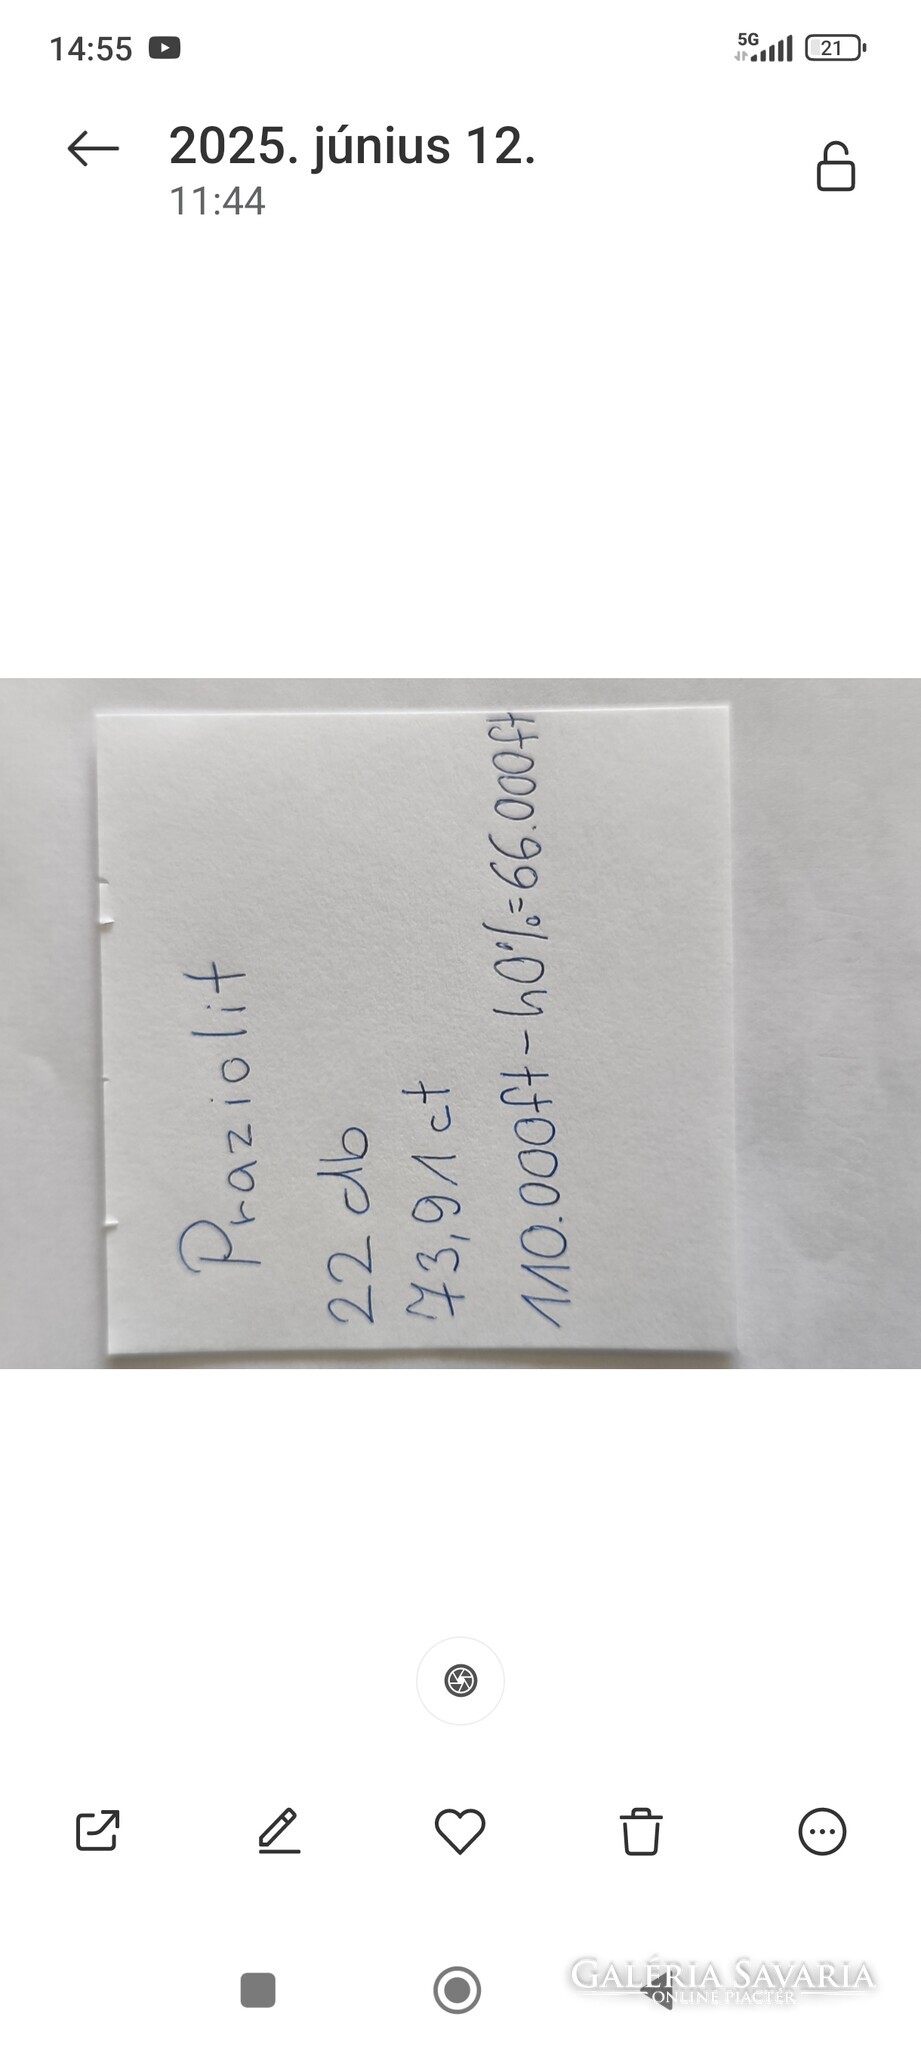 14:55
5G
21
2025. június 12.
11:44
Praziolit
22 db
73,91 ct
110.000ft-40%=66.000ft
GALÉRIA SAVARIA
ONLINE PIACTÉR